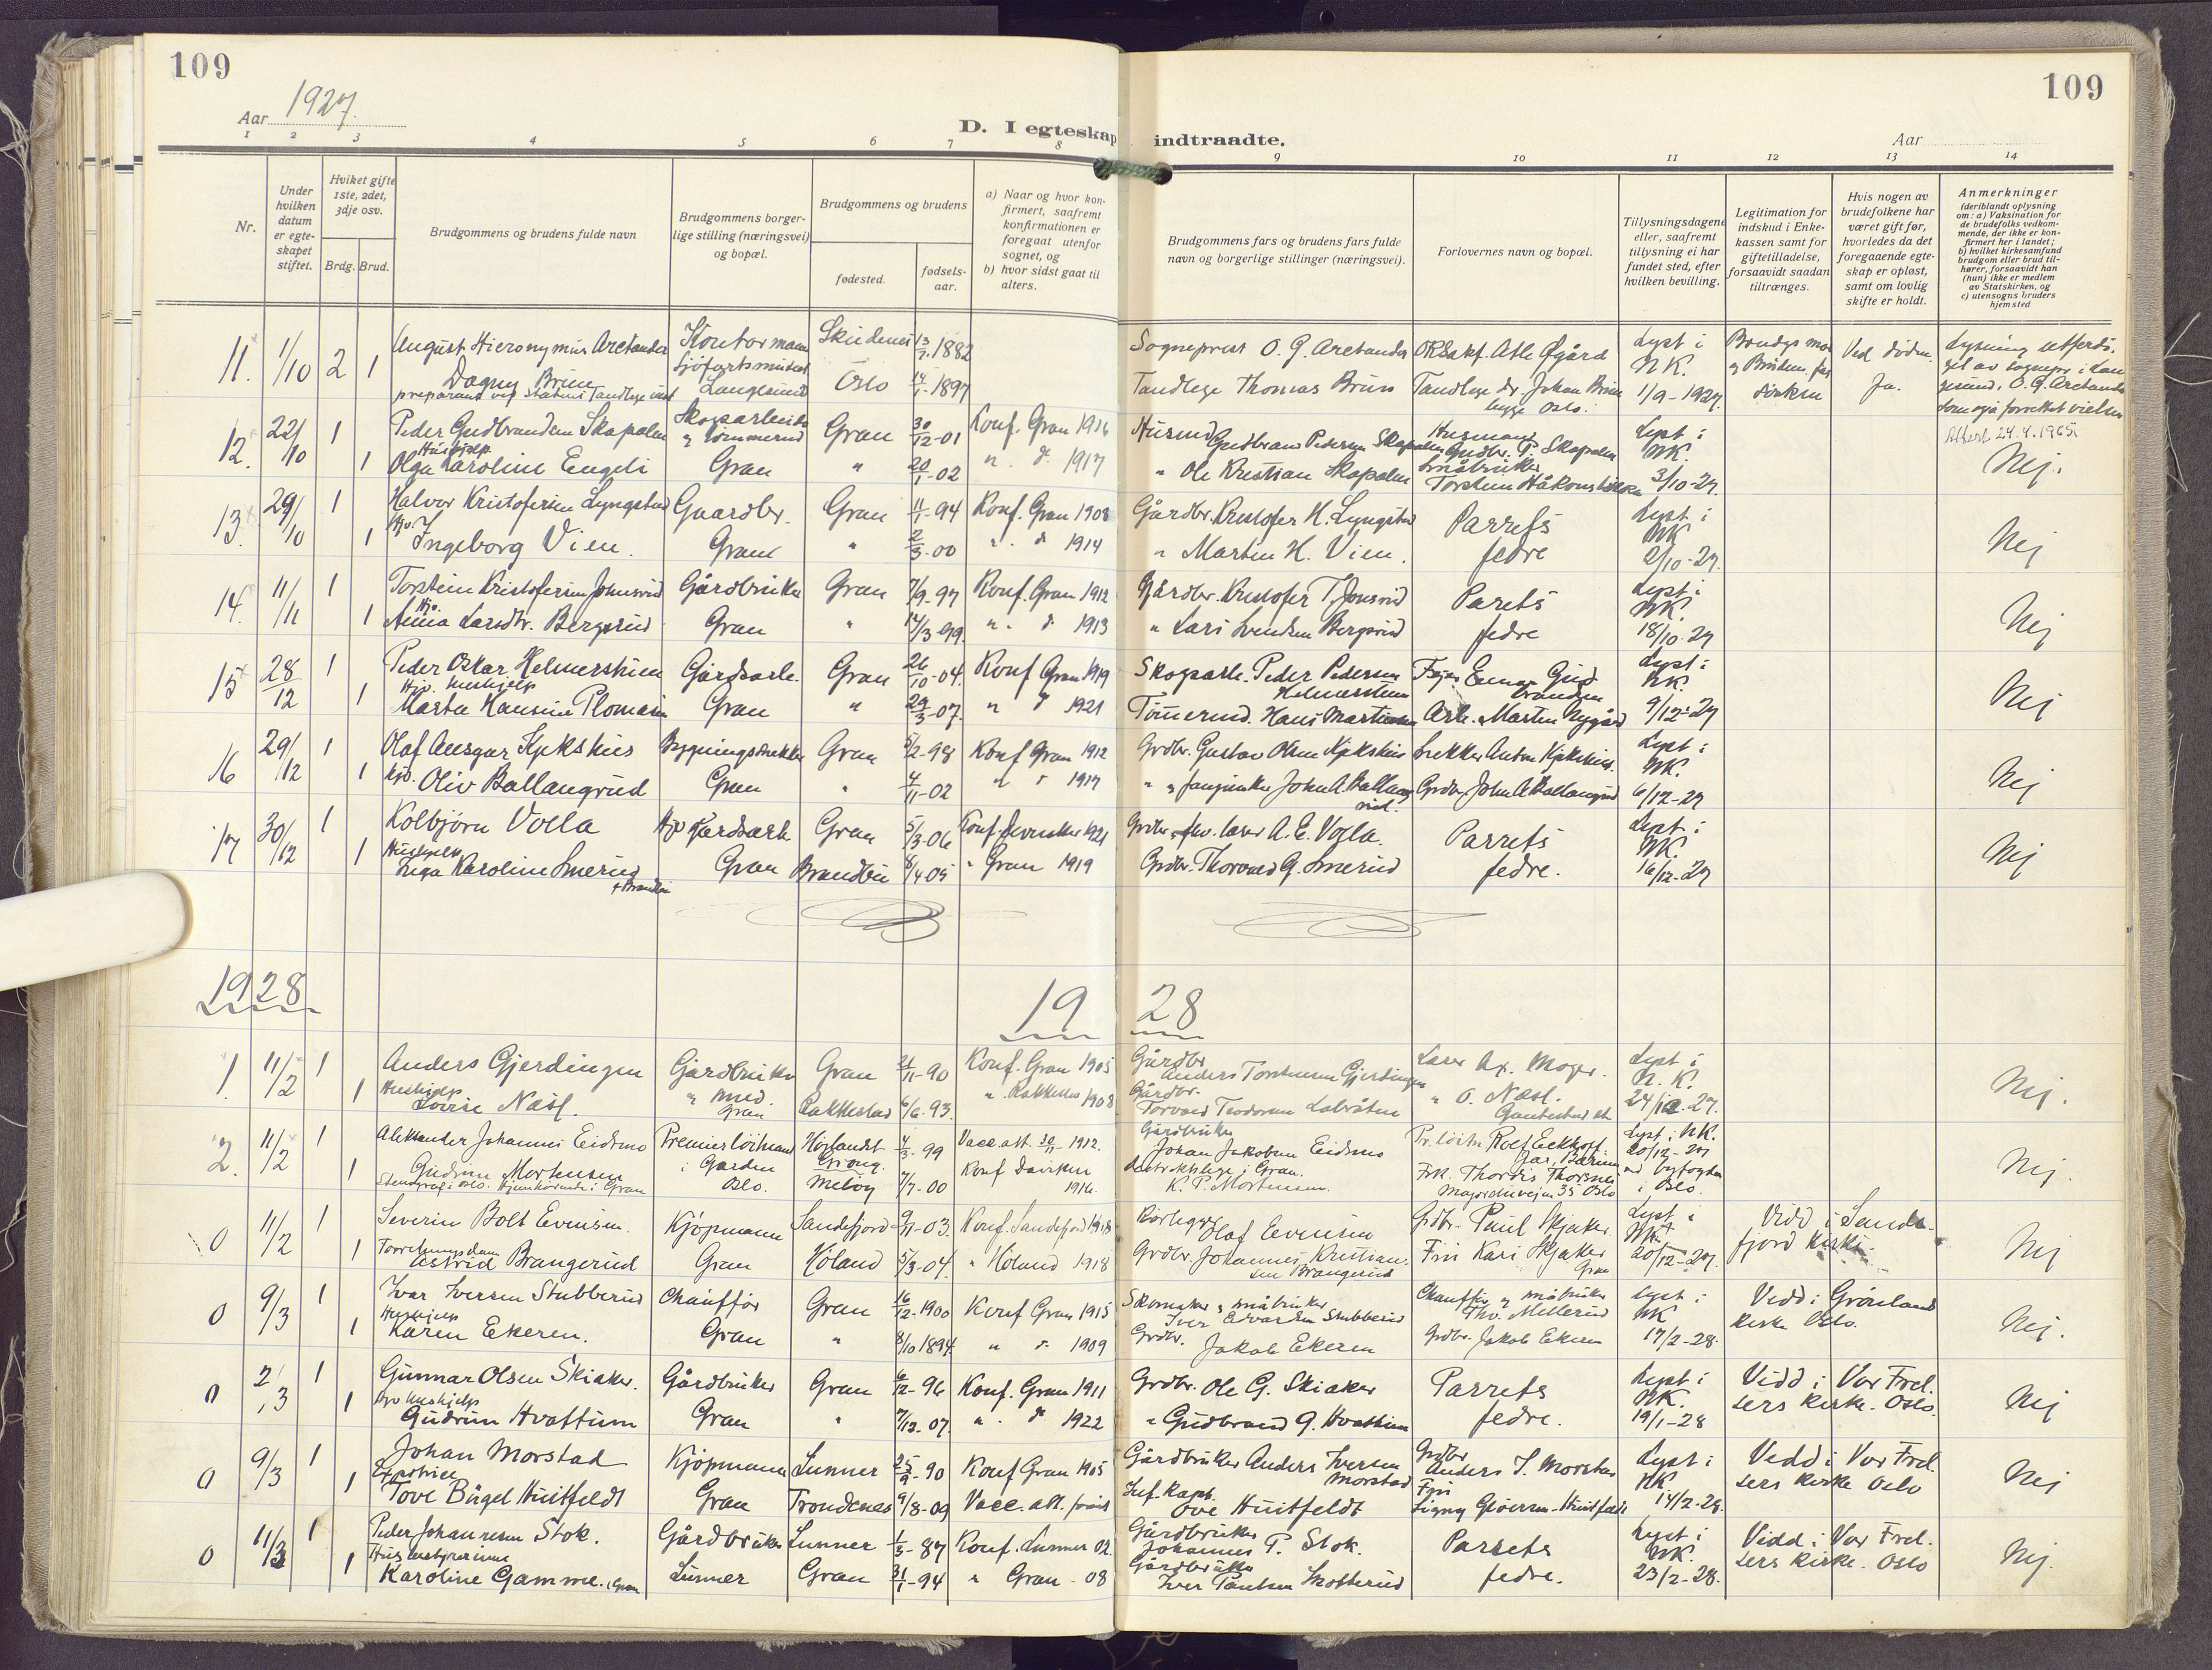 109
109
Aar 1927.
D. I egteskap indtraadte.
Aar
1 2 3 4 5 6 7 8 9 10 11 12 13 14
Nr.
Under hvilken datum er egteskapet stiftet.
Hviket gifte 1ste, 2det, 3dje osv.
Brdg. Brud.
Brudgommens og brudens fulde navn
Brudgommens borgerlige stilling (næringsvei) og bopæl.
Brudgommens og brudens
fødested.
fødselsaar.
a) Naar og hvor konfirmert, saafremt konfirmationen er foregaat utenfor sognet, og
b) hvor sidst gaat til alters.
Brudgommens fars og brudens fars fulde navn og borgerlige stillinger (næringsvei).
Forlovernes navn og bopæl.
Tillysningsdagene eller, saafremt tillysning ei har fundet sted, efter hvilken bevilling.
Legitimation for indskud i Enkekassen samt for giftetilladelse, forsaavidt saadan tiltrænges.
Hvis nogen av brudefolkene har været gift før, hvorledes da det foregaaende egteskap er opløst, samt om lovlig skifte er holdt.
Anmerkninger
(deriblandt oplysning om: a) Vaksination for de brudefolks vedkommende, der ikke er konfirmert her i landet; b) hvilket kirkesamfund brudgom eller brud tilhører, forsaavidt han (hun) ikke er medlem av Statskirken, og c) utensogns bruders hjemsted
11. 1/10 2 1 August Hieronymus Arctander Kontormann Skudenes 13/7 1882 Sogneprest O. G. Arctander Lyst i Ved døden.
Sjøfartsmuseet N K.
Dagny Bruun Langesund Oslo 14/1 1897 Tandlege Thomas Bruun Tandlege dr. Johan Bruun 1/9-1927. Ja.
12. 22/10 1 Peder Gudbrandsen Skapalen Skogarbeider Gran 30/12-01 Konf. Gran 1916 Husmd Gudbran Pedersen Skapalen Husmand Gudbr. P. Skapalen Lyst i Attest 24.4.1965
Hushjelp Småbruker NK. Nej.
1 Olga Karoline Engeli Gran " 20/1-02 " d. 1917 " Ole Kristian Skapalen Torstein 3/10-27.
13. 29/10 1 Halvor Kristofersen Lyngstad Gaardbr. Gran 11/1-94 Konf. Gran 1908 Gårdbr. Kristofer H. Lyngstad Parrets Lyst i NK
1 Ingeborg Vien. Gran " 2/3-00 " d 1914 " Martin H. Vien. fedre 2/10-27. Nej
14. 11/11 1 Torstein Kristofersen Jonsrud Gårdbruker Gran 7/9-97 Konf. Gran 1912 Gårdbr. Kristofer T. Jonsrud Parets Lyst i NK.
1 Anna Larsdtr. Bergsrud Gran " 14/3-99. " d 1913 " Lars Svendsen Bergsrud fedre 18/10-27 Nej
15 28/12 1 Peder Oskar Helmerstein Gårdsarb. Gran 26/10-04. Konf Gran 1919 Skogarb. Peder Pedersen Helmerstein Lyst i NK.
Hjv. Hushjelp
1 Marta Hansine Plomasen Gran " 29/3-07. " d 1921 Tømmermd. Hans Martinsen Arb. Martin Nygård 9/12-27 Nej
16 29/12 1 Olaf Ansgar Kjekshus Bygningssnekker Gran 5/2-98 Konf Gran 1912 Grdbr. Gustav Olsen Kjekshus Snekker Anton Kjekshus. Lyst i NK.
1 Hjv. Oliv Ballangrud Gran " 4/11-02 " d 1917 " fanejunker John A Ballangrud Grdbr. John A Ballangrud 6/12-27 Nej
17 30/12 1 Kolbjørn Volla Hjv Gardsarb. Gran 5/3-06 Konf. Jevnaker 1921 Grdbr. A. E. Volla. Parrets Lyst i NK.
1 Hushjelp Inga Karoline Smerud Gran Brandbu 8/4-05 " Gran 1919 Grdbr. Thorvald G. Smerud fedre. 16/12-27 Nej
1928 19 28
1. 11/2 1 Anders Gjerdingen Gårdbruker Gran 21/11-90 Konf. Gran 1905 Gårdbr Anders Torstensen Gjerdingen Lærer Ax. Moger. Lyst i N. K.
1 Hushjelp Lovise Næsl. Gran Rakkestad 6/6-93. " Rakkestad 1908 Gårdbr. Torvald Teodorsen Labråten " O. Næsl. 24/12-27. Nej.
2. 11/2 1 Aleksander Johannes Eidsmo Premierløitnant i Garden Grong 4/3-99 Vacc. att. 30/11-1912. Gårdbruker Johan Jakobsen Eidsmo Pr. løitn. Rolf Eckhoff Lyst i NK. 20/12-27
1 Gudrun Mortensen Oslo. Meløy 7/7-00 Konf 1916. Distriktslæge i Gran. K. P. Mortensen. Frk. Thordis Majorstuvejen 35 Oslo i Oslo. Nej.
0 11/2 1 Severin Bolt Evensen. Kjøpmann Sandefjord 9/11-03. Konf. Sandefjord 1918 Olaf Evensen Grdbr. Paul Skjaker. Lyst i NK. Vidd i Sandefjord kirke.
1 Astrid Brangerud Gran Høland 5/3-04. " Høland 1918 Grdbr Johannes Kristiansen Brangerud Fru Kari Skjaker Gran 20/12-27. Nej
0 9/3 1 Ivar Iversen Stubberud Chauffør Gran 16/12-1900 Konf Gran 1915 Skomaker & småbruker Iver Edvardsen Stubberud Chauffør & småbruker Tho. Mellerud Lyst i NK Vidd i Grønland kirke Oslo.
1 Hushjelp Karen Ekeren. Gran " 8/10 1894. " d. 1909 Grdbr. Jakob Ekeren Grdbr. Jakob Ekeren 17/2-28. Nej.
0 2/3 1 Gunnar Olsen Skiaker. Gårdbruker Gran 6/12-96 Konf. Gran 1911 Grdbr. Ole G. Skiaker Parrets Lyst i NK. Vidd i Vor Frelsers kirke. Oslo.
1 Hjv hushjelp Gudrun Hvattum Gran " 7/12-07. " d 1922 " Gudbrand G. Hvattum fedre. 19/1-28 Nej
0 9/3 1 Johan Morstad Kjøpmann Lunner 25/9-90 Konf Gran 1905 Gårdbruker Anders Iversen Morstad Grdbr Anders I. Morstad Lyst i NK. Vidd i Vor Frelsers kirke Oslo
1 Tove Bugel Huitfeldt Gran Trondenes 9/8-09 Vacc. att. Inf. Kapt. Ove Huitfeldt Fru Signy 14/2-28. Nej
0 11/3 1 Peder Johannesen Stok. Gårdbruker Lunner 1/3-87 Konf. Lunner 02. Gårdbruker Johannes P. Stok. Parrets Lyst i NK. Vidd i Vor Frelsers kirke. Oslo
1 Husbestyrerinne Karoline Gamme. i Gran Lunner Gran 31/1-94 " Gran-08 Gårdbruker Iver Paulsen fedre. 23/2-28. Nej.